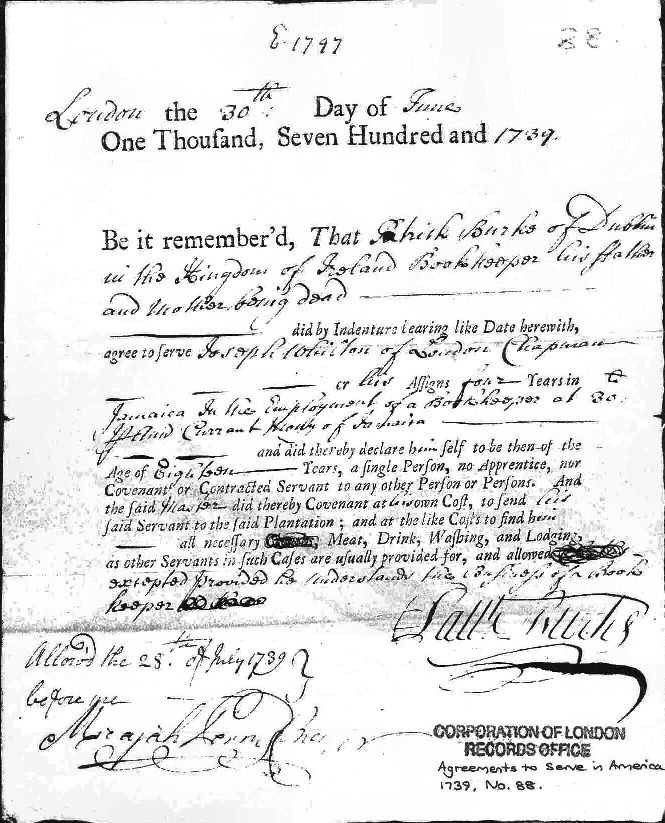 E. 1797
88
London the 30th Day of June
One Thousand, Seven Hundred and 1739.
Be it remember'd, That Patrick Burke of Dublin
in the Kingdom of Ireland Bookkeeper his ffather
and Mother being dead
did by Indenture bearing like Date herewith,
agree to serve Joseph Whilton of London Chapman
or his Assigns four Years in
Jamaica In the Employment of a Bookkeeper at 30
Currant Money of Jamaica
and did thereby declare him self to be then of the
Age of Eighteen Years, a single Person, no Apprentice, nor
Covenant or Contracted Servant to any other Person or Persons. And
the said Master did thereby Covenant at his own Cost, to send his
said Servant to the said Plantation; and at the like Costs to find him
all necessary Meat, Drink, Washing, and Lodging,
as other Servants in such Cases are usually provided for, and allowed
excepted provided he understands the business of a Book
keeper
Patk Burke
Allow'd the 28th of July 1739
before me
Micajah Perry
CORPORATION OF LONDON
RECORDS OFFICE
Agreements to Serve in America
1739, No. 88.